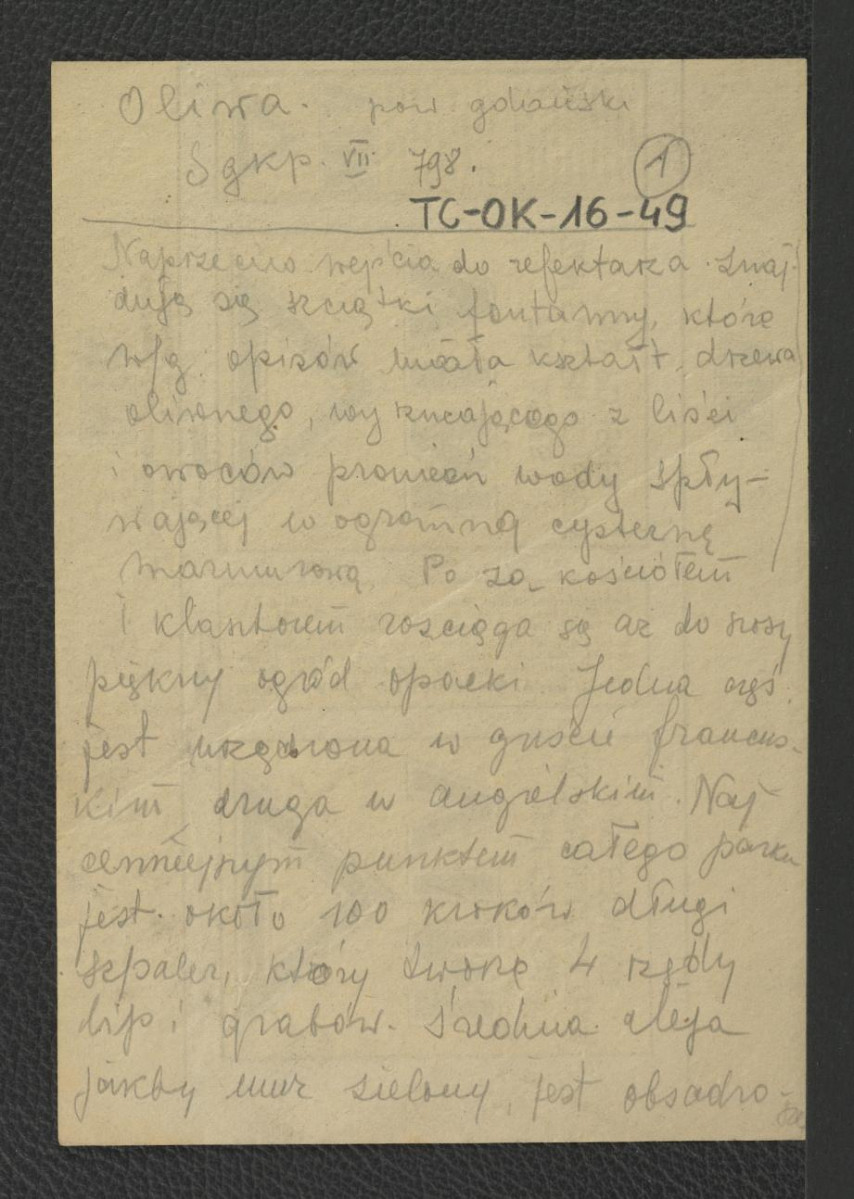 Oliwa. pow gdański
Sgkp. VII 798. 1
TC-OK-16-49
Naprzeciw wejścia do refektarza znaj-
dują się szczątki fontanny, która
w/g opisów miała kształt drzewa
oliwnego, wyrzucającego z liści
i owoców promień wody spły-
wającej w ogromną cysternę
marmurową. Po za kościołem
i klasztorem rozciąga się aż do szosy
piękny ogród opacki. Jedna częś
jest urządzona w guście francus-
kim druga w angielskim. Naj-
cenniejszym punktem całego parku
jest około 100 kroków długi
szpaler, który tworzą 4 rzędy
lip i grabów. Średnia aleja
jakby mur zielony, jest obsadzo-